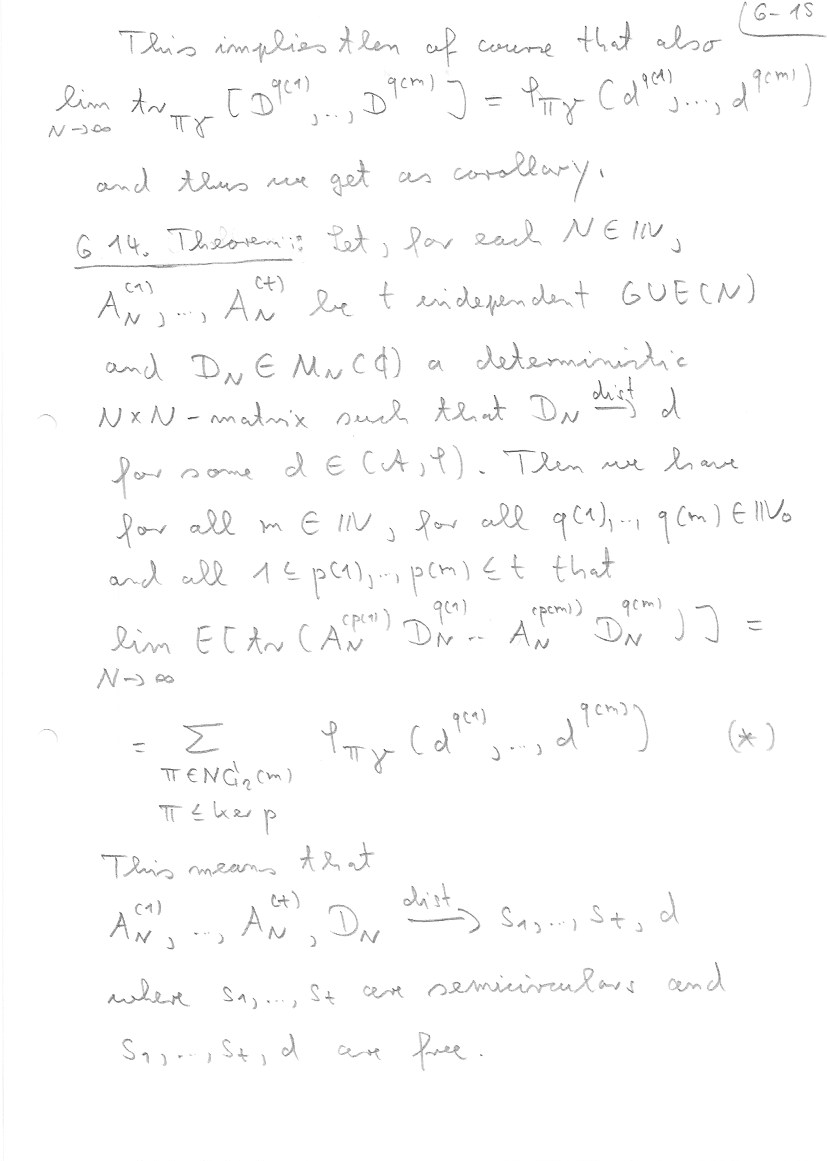 (6-15
This implies then of course that also
lim tr_{πγ} [D^{q(1)},..., D^{q(m)}] = φ_{πγ} (d^{q(1)},..., d^{q(m)})
N→∞
and thus we get as corollary.
6 14. Theorem: Let, for each N∈ℕ,
A_N^{(1)},..., A_N^{(t)} be t independent GUE(N)
and D_N ∈ M_N(ℂ) a deterministic
N×N-matrix such that D_N →^{dist} d
for some d ∈ (𝒜,φ). Then we have
for all m ∈ ℕ, for all q(1),..., q(m) ∈ ℕ₀
and all 1 ≤ p(1),..., p(m) ≤ t that
lim E[tr (A_N^{(p(1))} D_N^{q(1)} .. A_N^{(p(m))} D_N^{q(m)})] =
N→∞
= Σ φ_{πγ} (d^{q(1)},..., d^{q(m)}) (*)
π∈NC₂(m)
π ≤ ker p
This means that
A_N^{(1)},..., A_N^{(t)}, D_N →^{dist} s₁,..., s_t, d
where s₁,..., s_t are semicirculars and
s₁,..., s_t, d are free.